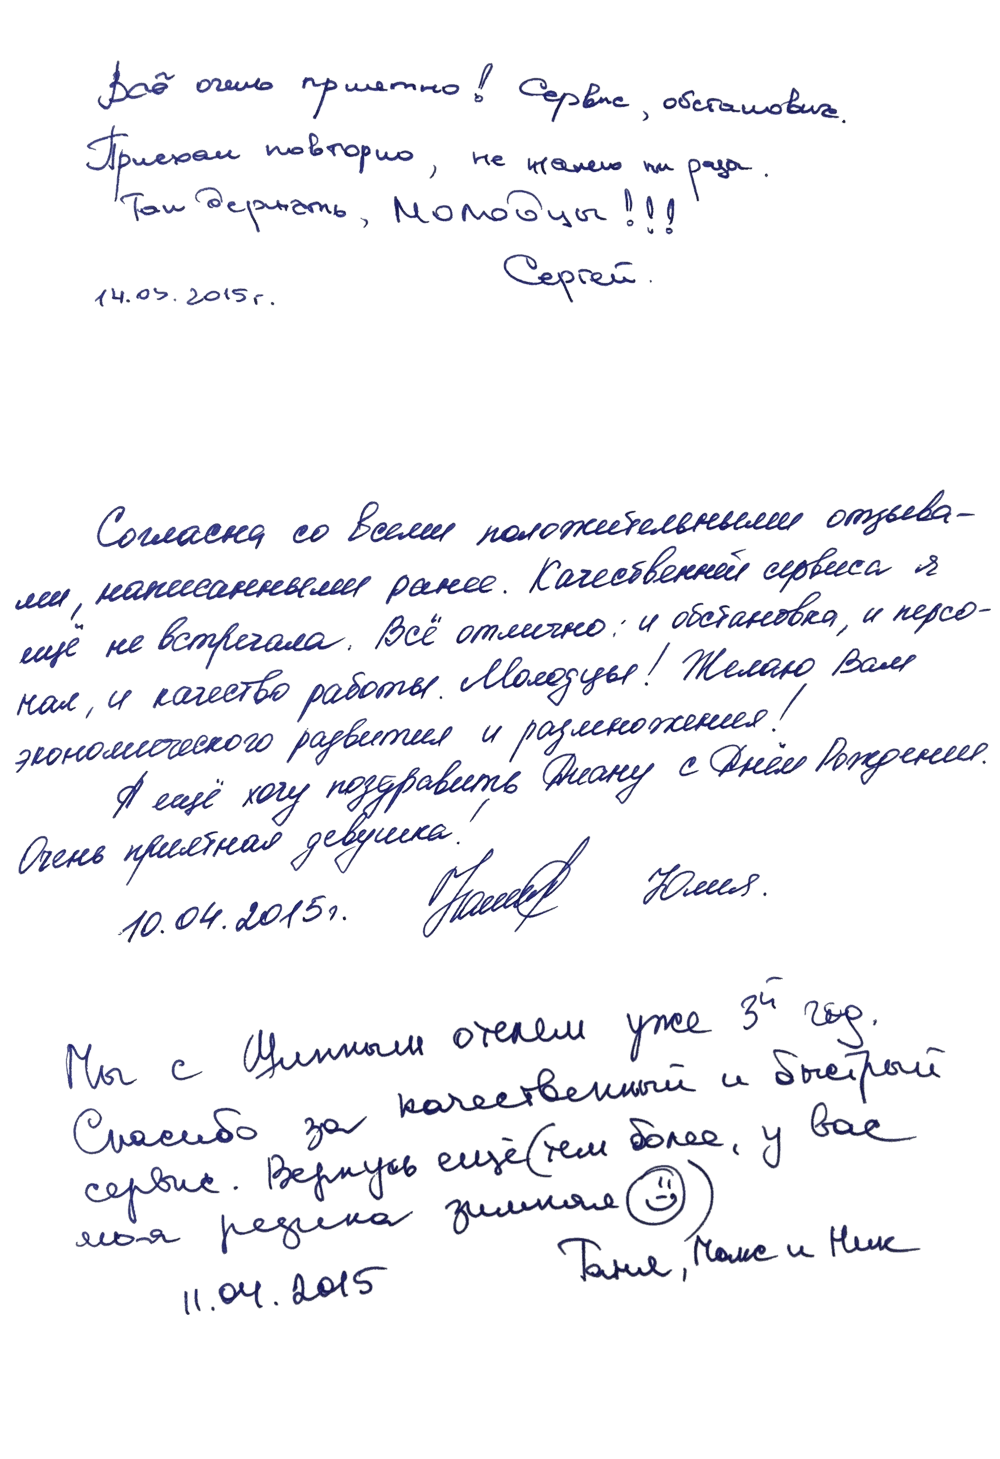 Всё очень приятно! Сервис, обстановка.
Приехал повторно, не жалею ни разу.
Так держать, Молодцы!!!
Сергей.
14.03.2015г.
Согласна со всеми положительными отзыва-
ми, написанными ранее. Качественней сервиса я
ещё не встречала. Всё отлично: и обстановка, и персо-
нал, и качество работы. Молодцы! Желаю Вам
экономического развития и размножения!
А ещё хочу поздравить Диану с Днём Рождения.
Очень приятная девушка!
10.04.2015г. Юлия.
Мы с Шинным отелем уже 3й год.
Спасибо за качественный и быстрый
сервис. Вернусь ещё (тем более, у вас
моя резина зимняя)
11.04.2015 Таня, Макс и Ник